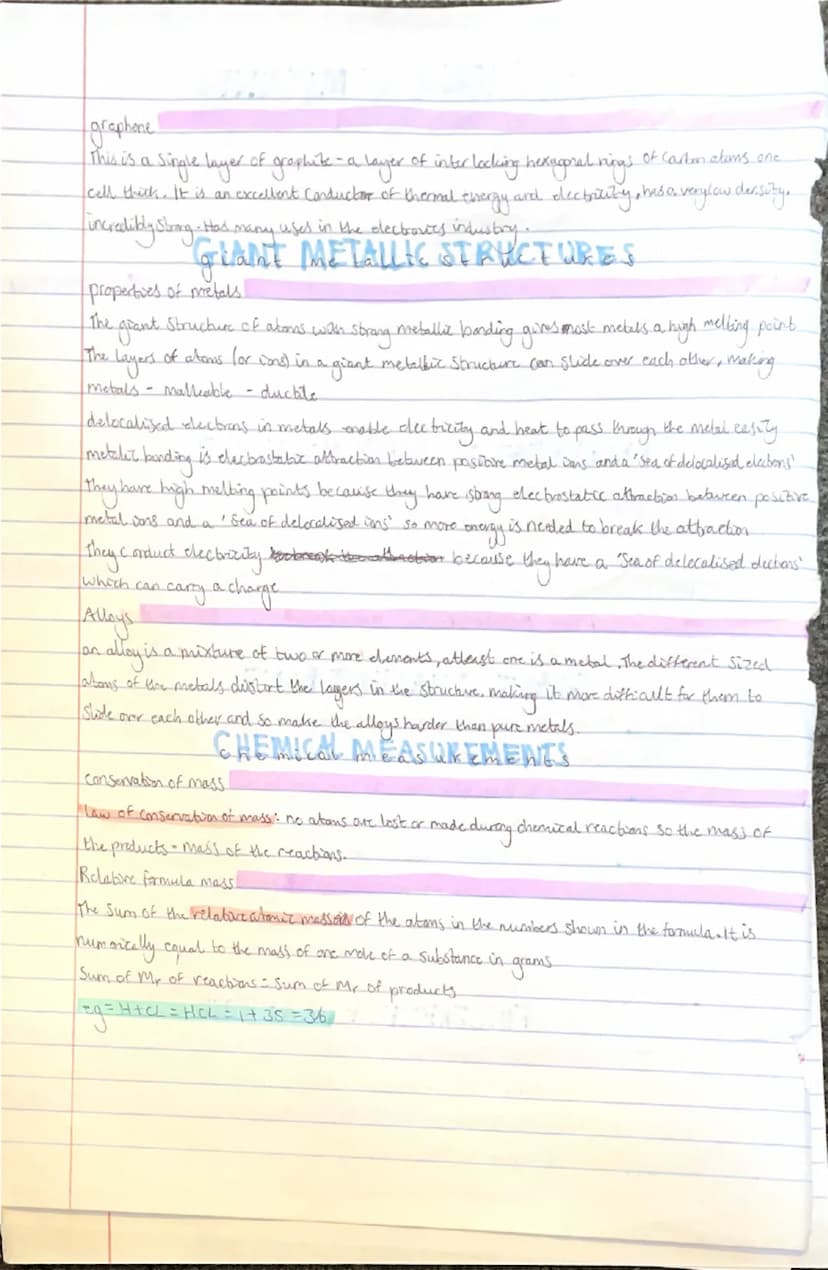 graphene
This is a single layer of graphite - a layer of interlocking hexagonal rings of carbon atoms one
cell thick. It is an excellent conductor of thermal energy and electricity, has a very low density,
incredibly strong. Had many uses in the electronics industry.
GIANT METALLIC STRUCTURES
properties of metals
The giant structure of atoms with strong metallic bonding gives most metals a high melting point
The layers of atoms (or ions) in a giant metallic structure can slide over each other, making
metals - malleable - ductile
delocalised electrons in metals enable electricity and heat to pass through the metal easily
metallic bonding is electrostatic attraction between positive metal ions and a 'sea of delocalised electrons'
They have high melting points because they have strong electrostatic attraction between positive
metal ions and a 'sea of delocalised ions' so more energy is needed to break the attraction
They conduct electricity to break the attraction because they have a 'sea of delocalised electrons'
which can carry a charge
Alloys
an alloy is a mixture of two or more elements, atleast one is a metal, The different sized
atoms of the metals distort the layers in the structure, making it more difficult for them to
slide over each other and so make the alloys harder than pure metals.
CHEMICAL MEASUREMENTS
conservation of mass
law of conservation of mass: no atoms are lost or made during chemical reactions so the mass of
the products = mass of the reactions.
Relative formula mass
The sum of the relative atomic masses of the atoms in the numbers shown in the formula. It is
numerically equal to the mass of one mole of a substance in grams
Sum of Mr of reactions = sum of Mr of products
eg = H+CL = HCL = 1+35 = 36